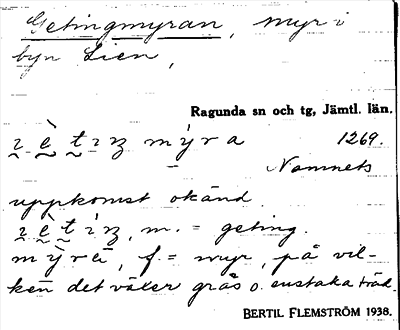 Getingmyran, myr i
byn Lien,
Ragunda sn och tg, Jämtl. län.
myra 1269.
Namnets
uppkomst okänd.
m. = geting.
f. = myr, på vil-
ken det växer gräs o. enstaka träd.
BERTIL FLEMSTRÖM 1938.